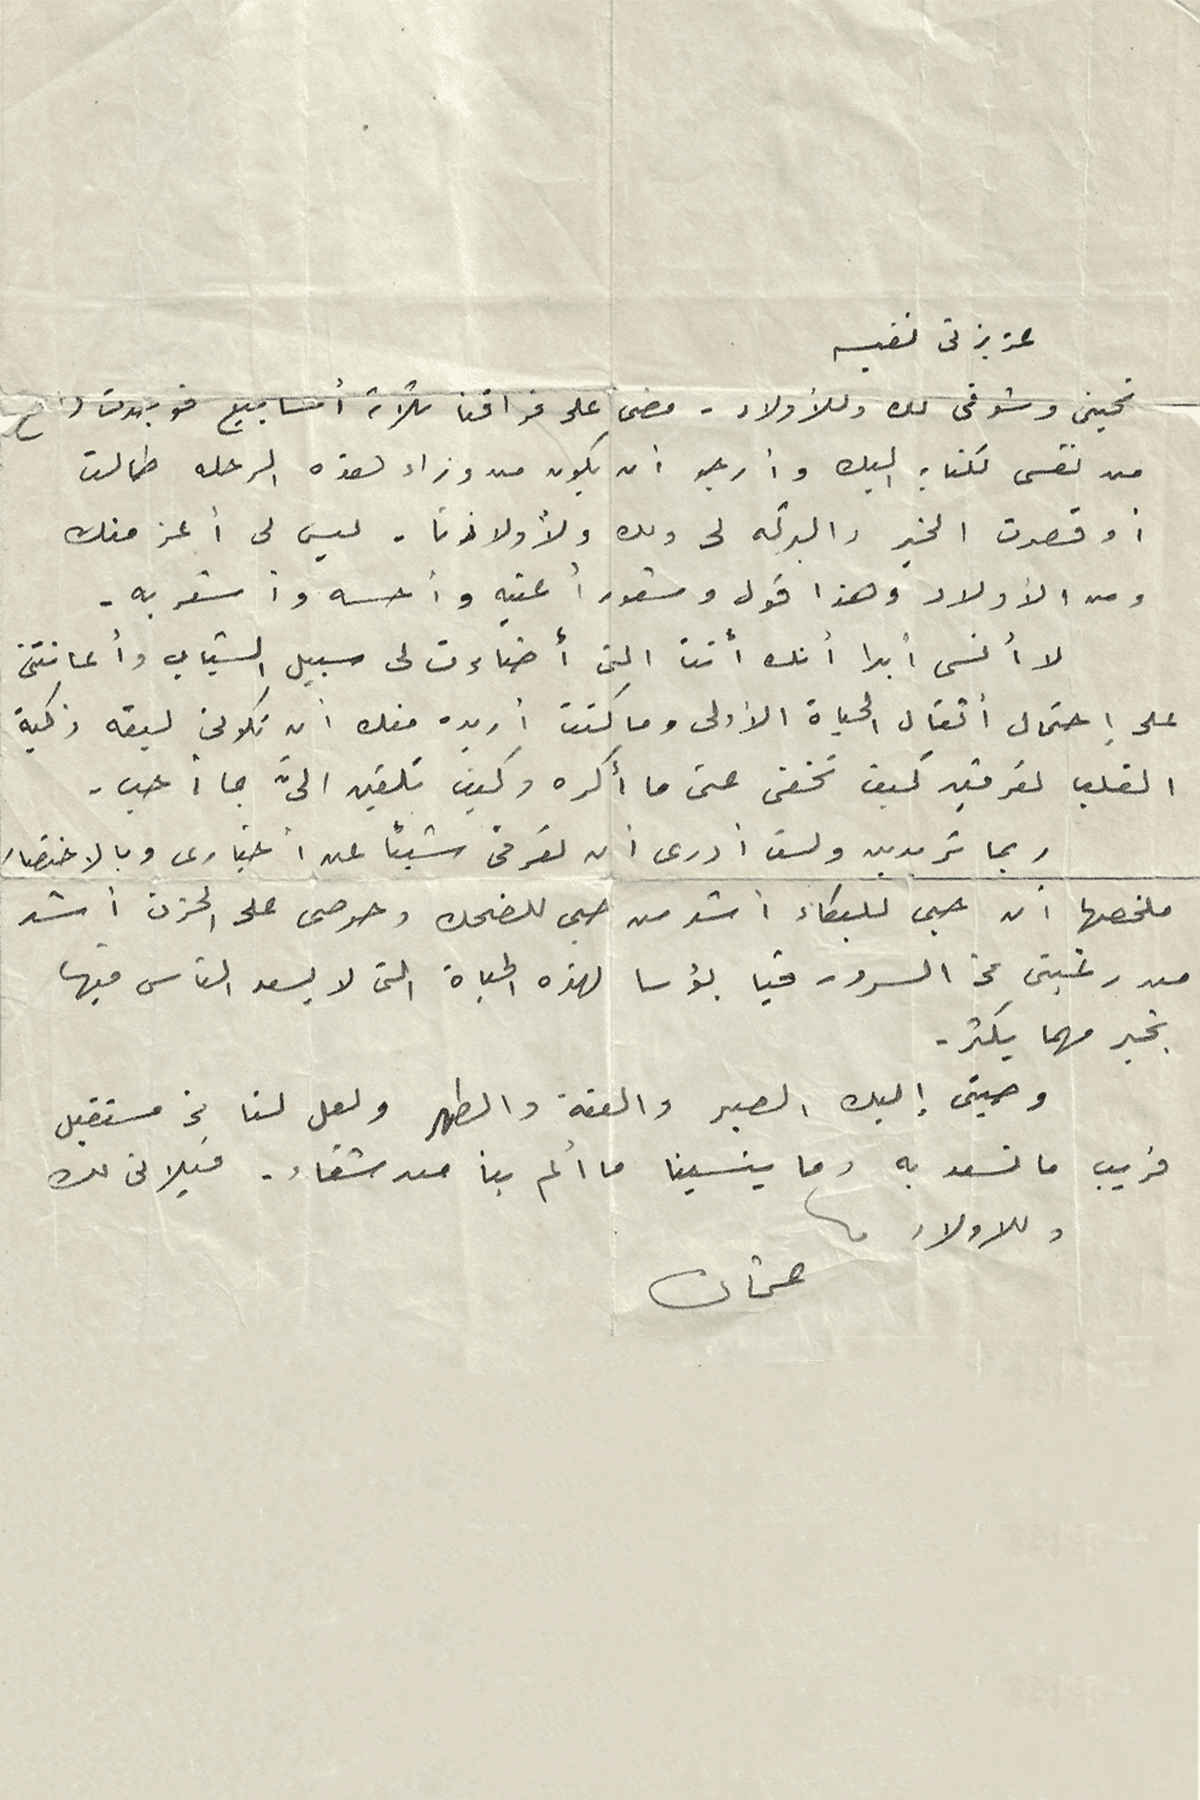 عزيزتى نفيسه
تحيتى وشوقى لك وللأولاد - مضى على فراقنا ثلاثة أسابيع فوجدت دافع
من نفسى لكتابه اليك وأرجو أن يكون من وراء هذه الرحله طالت
أو قصرت الخير والبركه لى ولك ولأولادنا - ليس لى أعز منك
ومن الأولاد وهذا قول وشعور أعنيه وأحسه وأشعر به -
لا أنسى أبدا أنك أنت التى أضاءت لى سبيل الشباب وأعانتنى
على إحتمال أثقال الحياة الأولى وما كنت أريده منك أن تكونى لبقه ذكية
القلب تعرفين كيف تخفى عنى ما أكره وكيف تلقين الىّ بما أحب -
ربما تريدين ولست أدرى أن تعرفى شيئاً عن أخبارى وبالاختصار
ملخصها أن حبى للبكاء أشد من حبى للضحك وحرصى على الحزن أشد
من رغبتى فى السرور فيا بؤسا لهذه الحياة التى لا يسعد الناس فيها
بخير مهما يكثر -
وصيتى إليك الصبر والعفة والطهر ولعل لنا فى مستقبل
قريب ما نسعد به وما ينسينا ما ألم بنا من شقاء - قبلاتى لك
وللاولاد
عثمان